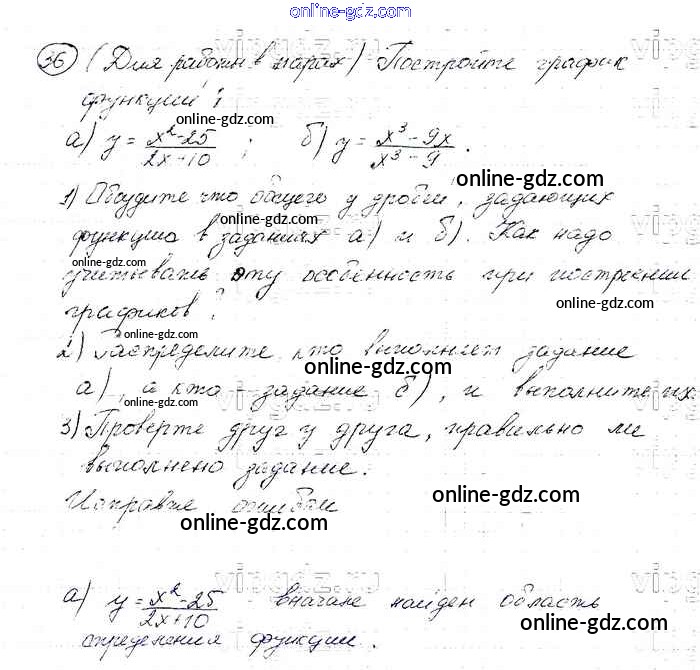 online-gdz.com
36 (Для работы в парах) Постройте график
функции:
а) y = x²-25 / 2x+10 ; б) y = x³-9x / x³-9 .
1) Обсудите что общего у дробей, задающих
функцию в заданиях а) и б). Как надо
учитывать эту особенность при построении
графиков?
2) Распределите, кто выполняет задание
а), а кто - задание б), и выполните их.
3) Проверьте друг у друга, правильно ли
выполнено задание.
Исправьте ошибки
а) y = x²-25 / 2x+10 вначале найдем область
определения функции.
online-gdz.com
online-gdz.com
online-gdz.com
online-gdz.com
online-gdz.com
online-gdz.com
online-gdz.com
online-gdz.com
online-gdz.com
online-gdz.com
online-gdz.com
online-gdz.com
online-gdz.com
online-gdz.com